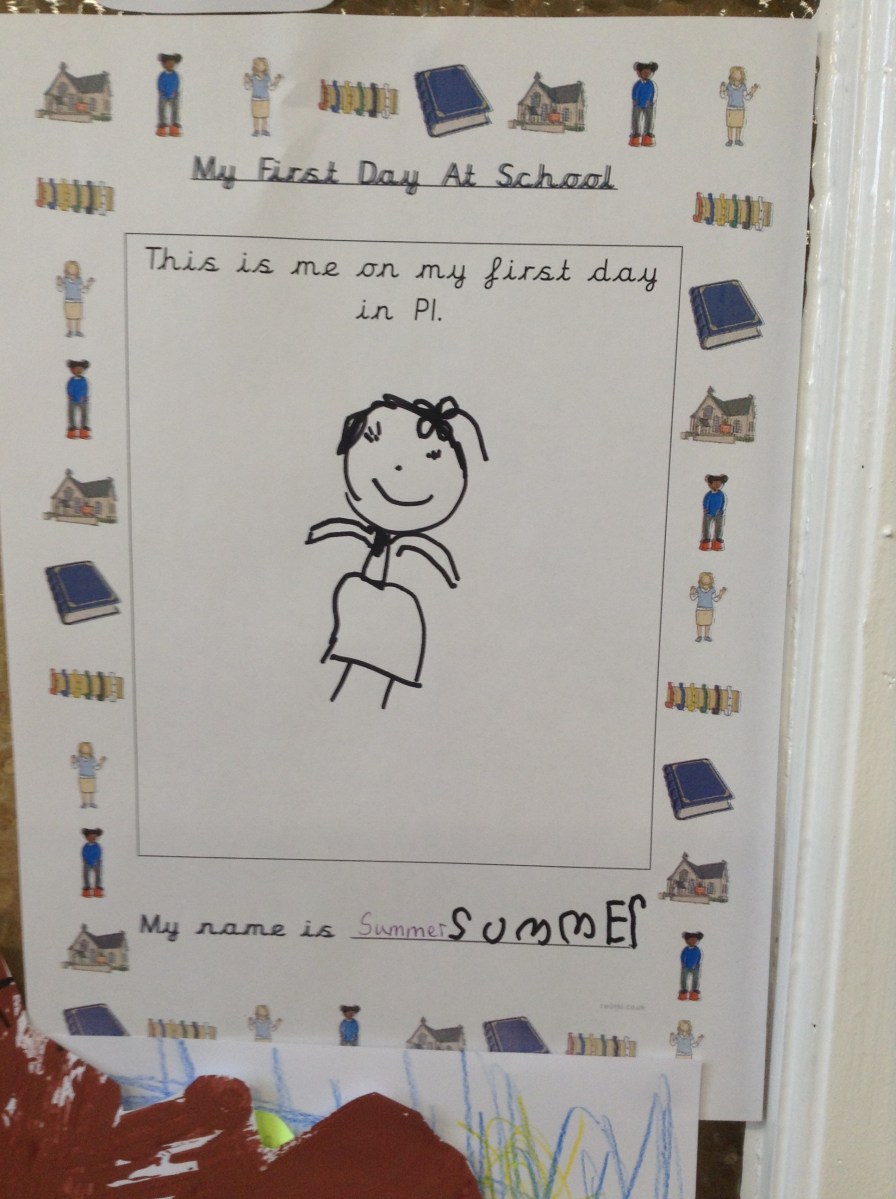 My First Day At School
This is me on my first day
in P1.
My name is Summer SUMMEr